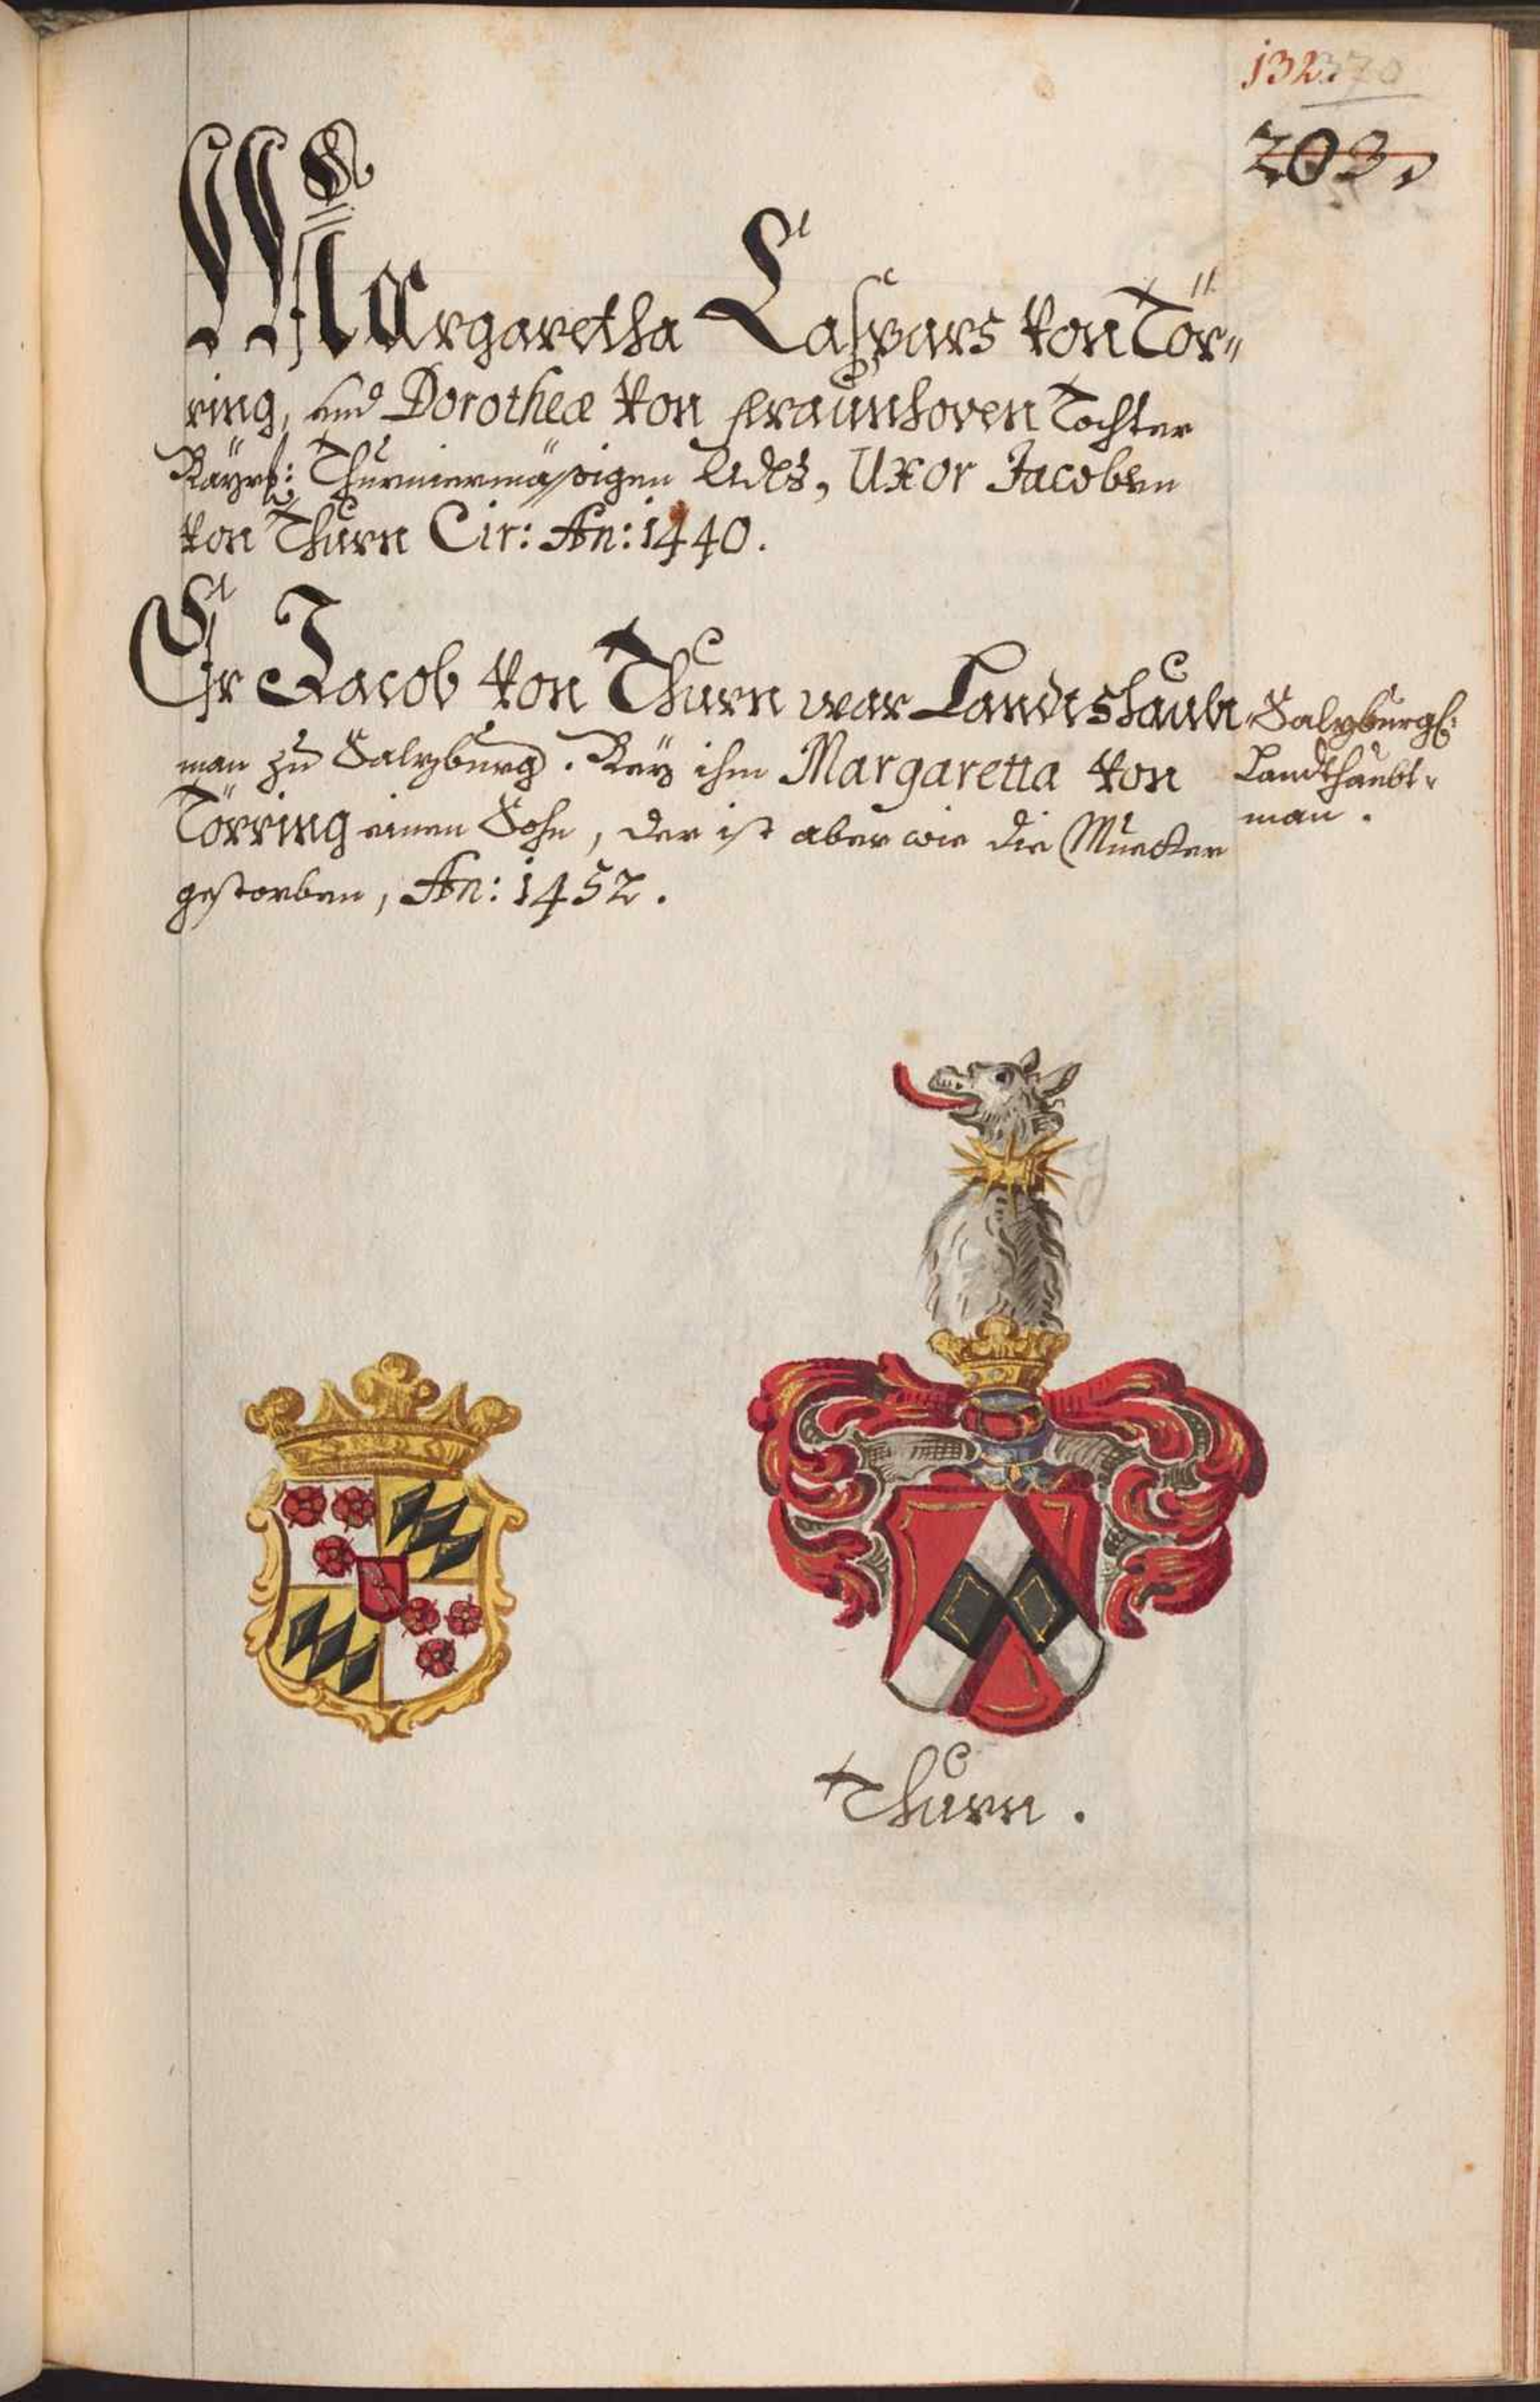 132. 370
203.
Margaretha Caspars von Tör-
ring, und Dorotheæ von fraunhoven Tochter
Bäyrs: Thurniermässigen Adls, Uxor Jacoben
von Thurn Cir: An: 1440.
Er Jacob von Thurn war Landtshaubt
man zu Salzburg. Bey ihm Margaretta von
Törring einen Sohn, der ist aber wie die Muetter
gestorben, An: 1452.
Salzburgl:
Landtshaubt-
man.
Thurn.